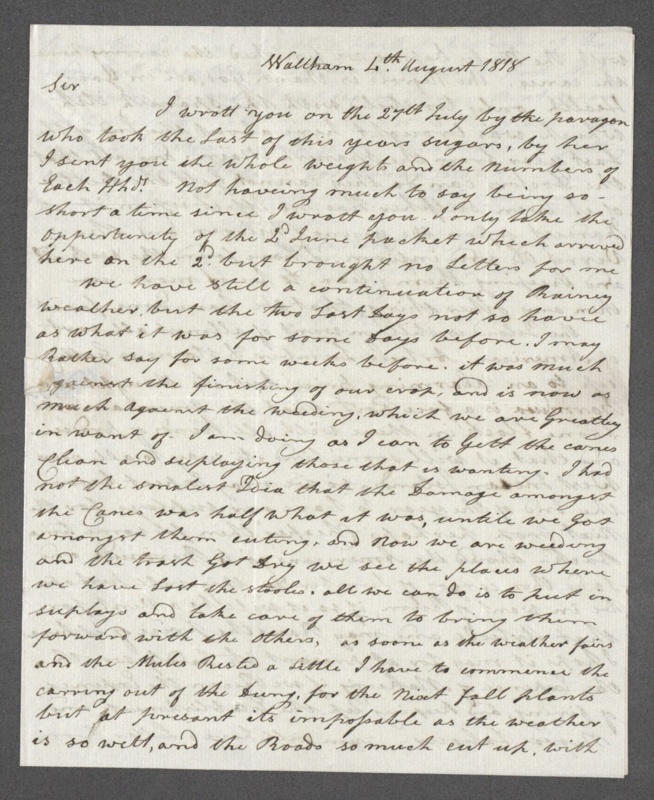 Waltham 4th. August 1818
Sir
I wrott you on the 27th July by the paragon
who took the Last of this years sugars, by her
I sent you the whole weights and the Numbers of
Each Hhd. Not haveing much to say being so-
short a time since I wrott you I only take the
opportunity of the 2d June packet which arrived
here on the 2d. but brought no Letters for me
we have still a continuation of Rainey
weather, but the two Last Days not so havie
as what it was for some Days before. I may
Rather say for some weeks before. it was much
against the finishing of our crop, and is now as
much against the weeding, which we are Greatley
in want of. I am doing as I can to Gett the canes
Clean and suplaying those that is wanting. I had
not the smalest Idia that the Damage amongst
the Canes was half what it was, untile we Got
amongst them cuting, and Now we are weeding
and the trash Got Drey we see the places where
we have Lost the stooles. all we can do is to put in
suplays and take care of them to bring them
forward with the others, as soon as the weather fairs
and the Mules Rested a Little I have to commence the
carring out of the Dung, for the Next fall plants
but at present its imposable as the weather
is so wett, and the Roads so much cut up, with